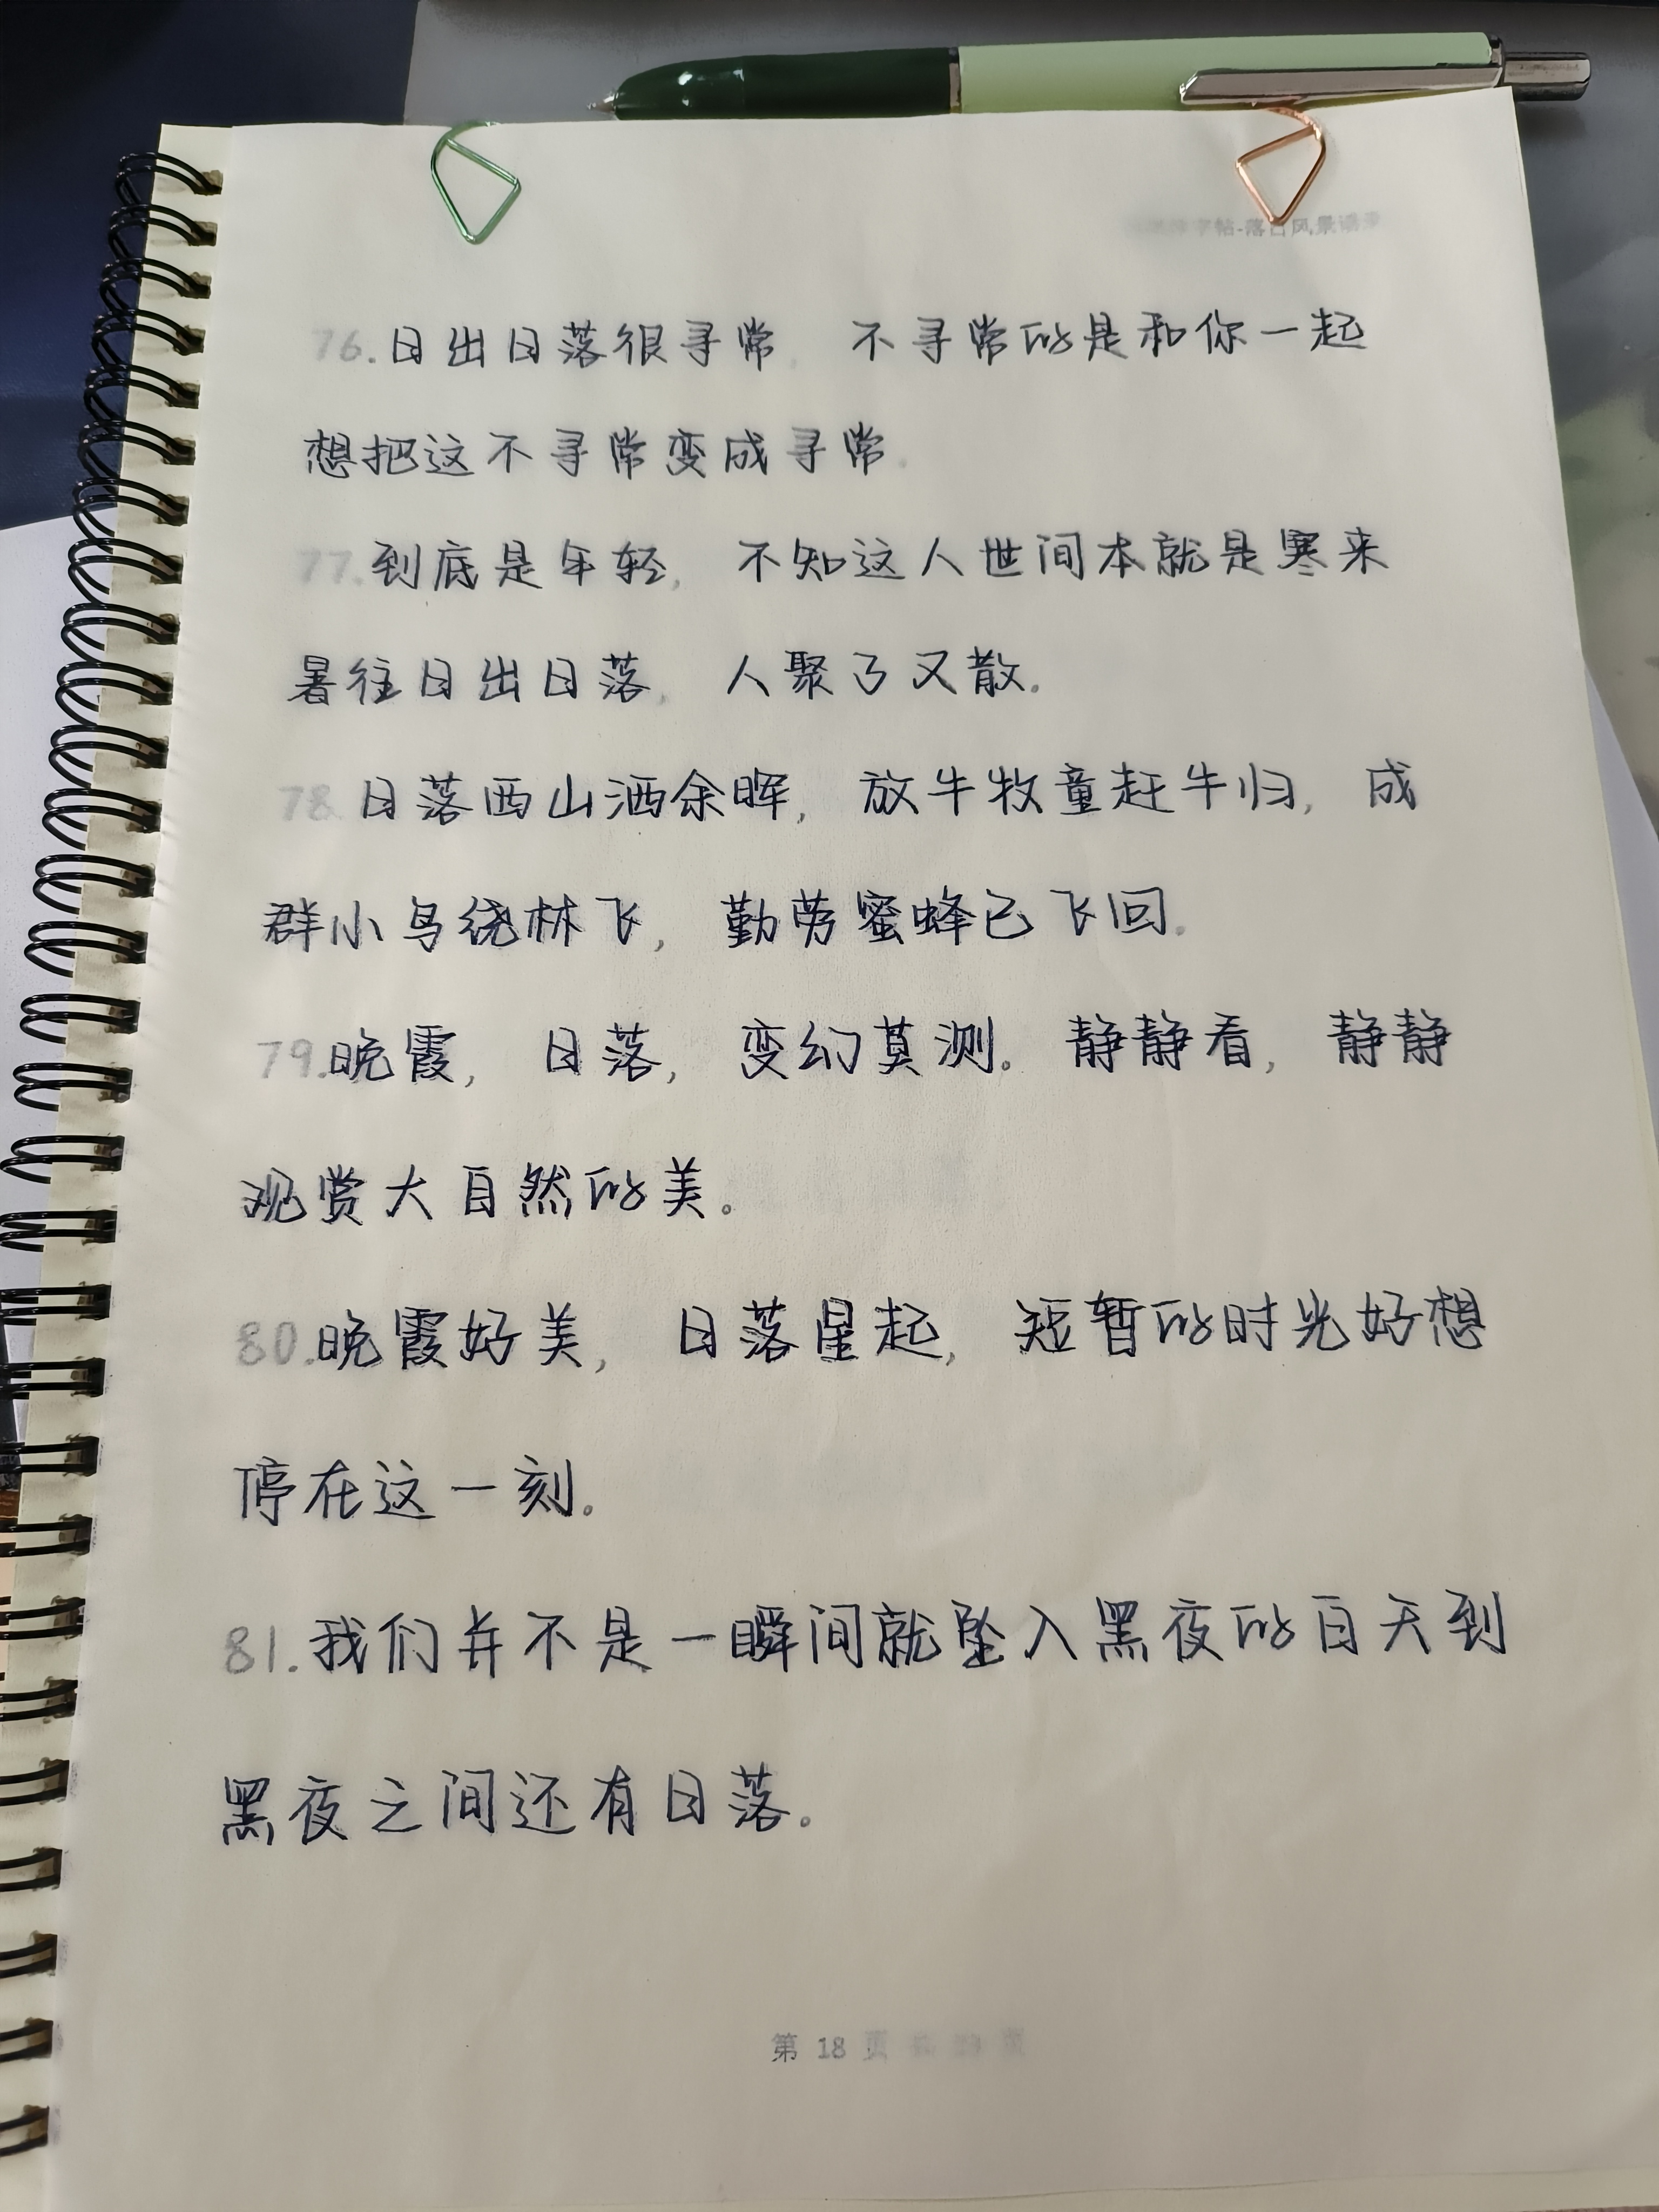 字帖-落日风景语录
76.日出日落很寻常，不寻常的是和你一起
想把这不寻常变成寻常.
77.到底是年轻，不知这人世间本就是寒来
暑往日出日落，人聚了又散.
78.日落西山洒余晖，放牛牧童赶牛归，成
群小鸟绕林飞，勤劳蜜蜂已飞回.
79.晚霞，日落，变幻莫测。静静看，静静
观赏大自然的美。
80.晚霞好美，日落星起，短暂的时光好想
停在这一刻.
81.我们并不是一瞬间就坠入黑夜的白天到
黑夜之间还有日落。
第 18 页